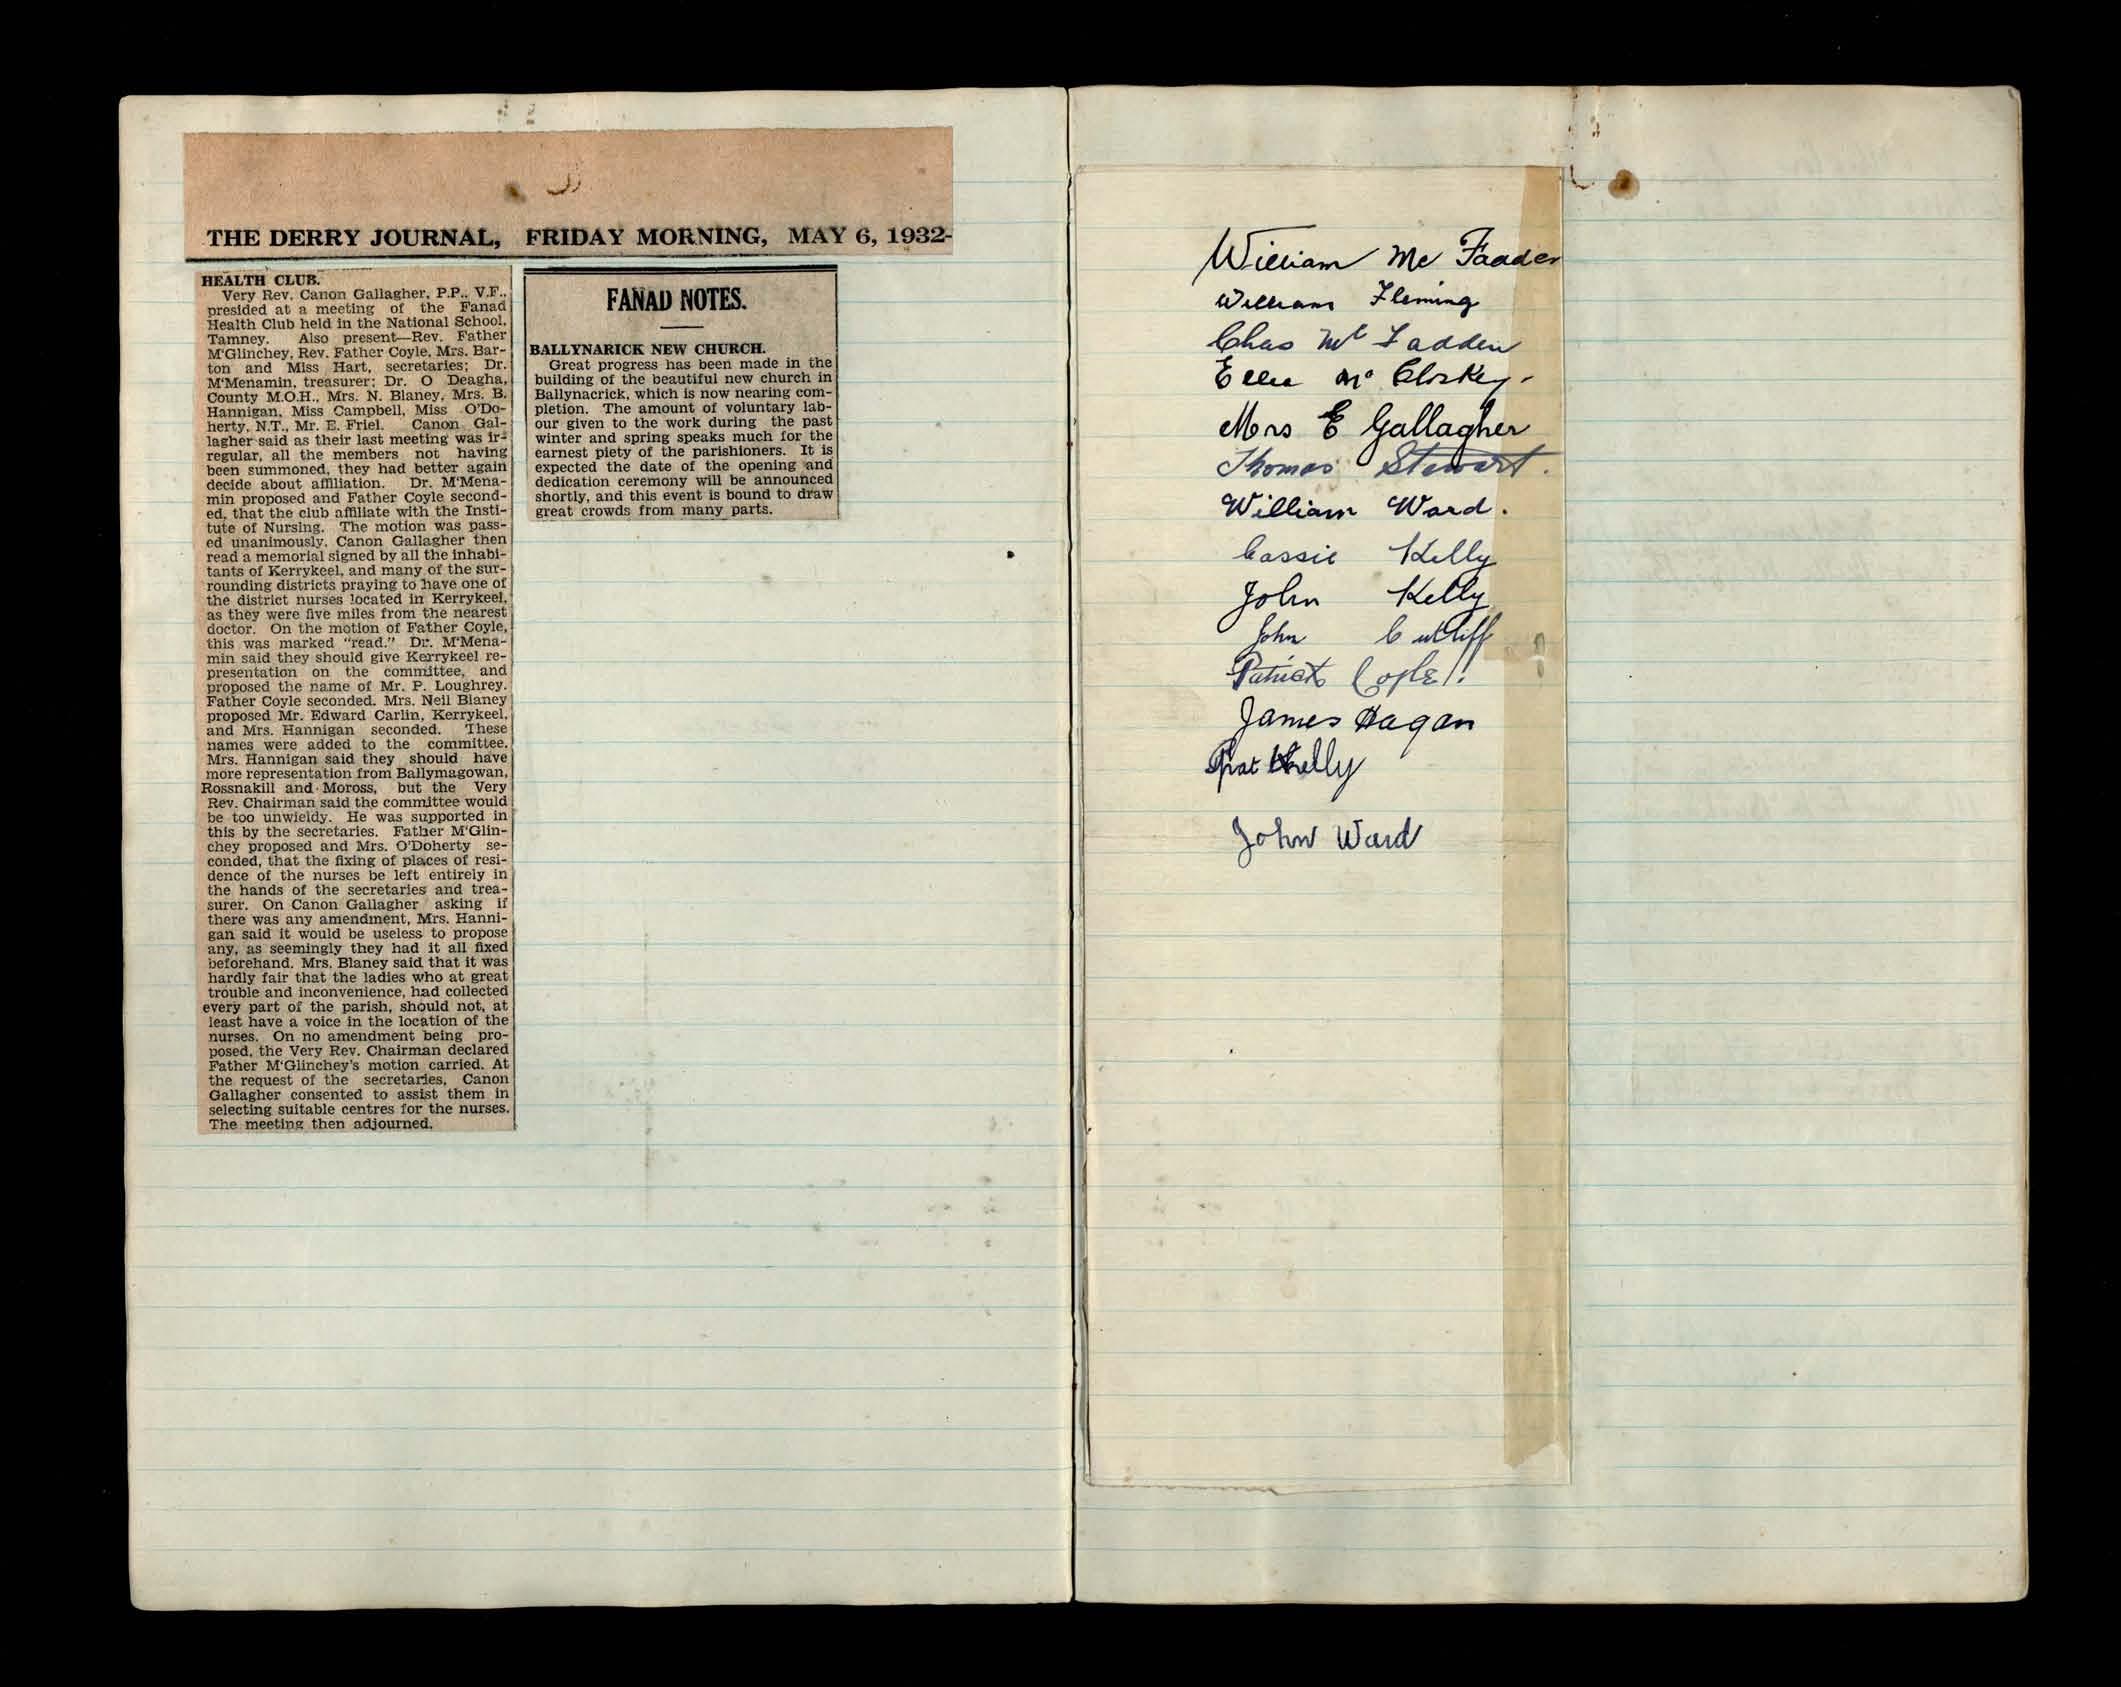 THE DERRY JOURNAL, FRIDAY MORNING, MAY 6, 1932-
HEALTH CLUB.
Very Rev. Canon Gallagher, P.P., V.F.,
presided at a meeting of the Fanad
Health Club held in the National School,
Tamney. Also present—Rev. Father
M'Glinchey, Rev. Father Coyle, Mrs. Bar-
ton and Miss Hart, secretaries; Dr.
M'Menamin, treasurer; Dr. O Deagha,
County M.O.H., Mrs. N. Blaney, Mrs. B.
Hannigan, Miss Campbell, Miss O'Do-
herty, N.T., Mr. E. Friel. Canon Gal-
lagher said as their last meeting was ir-
regular, all the members not having
been summoned, they had better again
decide about affiliation. Dr. M'Mena-
min proposed and Father Coyle second-
ed, that the club affiliate with the Insti-
tute of Nursing. The motion was pass-
ed unanimously. Canon Gallagher then
read a memorial signed by all the inhabi-
tants of Kerrykeel, and many of the sur-
rounding districts praying to have one of
the district nurses located in Kerrykeel,
as they were five miles from the nearest
doctor. On the motion of Father Coyle,
this was marked "read." Dr. M'Mena-
min said they should give Kerrykeel re-
presentation on the committee, and
proposed the name of Mr. P. Loughrey.
Father Coyle seconded. Mrs. Neil Blaney
proposed Mr. Edward Carlin, Kerrykeel,
and Mrs. Hannigan seconded. These
names were added to the committee.
Mrs. Hannigan said they should have
more representation from Ballymagowan,
Rossnakill and Moross, but the Very
Rev. Chairman said the committee would
be too unwieldy. He was supported in
this by the secretaries. Father M'Glin-
chey proposed and Mrs. O'Doherty se-
conded, that the fixing of places of resi-
dence of the nurses be left entirely in
the hands of the secretaries and trea-
surer. On Canon Gallagher asking if
there was any amendment, Mrs. Hanni-
gan said it would be useless to propose
any, as seemingly they had it all fixed
beforehand. Mrs. Blaney said that it was
hardly fair that the ladies who at great
trouble and inconvenience, had collected
every part of the parish, should not, at
least have a voice in the location of the
nurses. On no amendment being pro-
posed, the Very Rev. Chairman declared
Father M'Glinchey's motion carried. At
the request of the secretaries, Canon
Gallagher consented to assist them in
selecting suitable centres for the nurses.
The meeting then adjourned.
FANAD NOTES.
BALLYNARICK NEW CHURCH.
Great progress has been made in the
building of the beautiful new church in
Ballynacrick, which is now nearing com-
pletion. The amount of voluntary lab-
our given to the work during the past
winter and spring speaks much for the
earnest piety of the parishioners. It is
expected the date of the opening and
dedication ceremony will be announced
shortly, and this event is bound to draw
great crowds from many parts.
William Mc Fadden
William Fleming
Chas Mc Fadden
Ellie Mc Closkey.
Mrs E Gallagher
Thomas Stewart.
William Ward.
Cassie Kelly
John Kelly
John Cutliff
Patrick Coyle!
James Hagan
Pat Kelly
John Ward